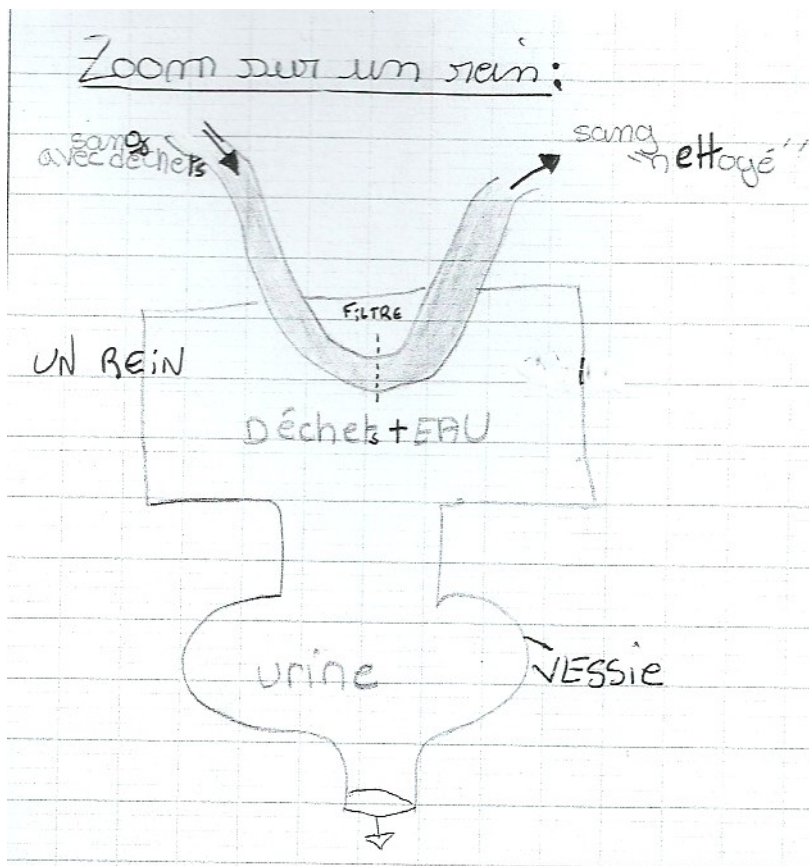 Zoom sur un rein:
sang
avec déchets
sang
"nettoyé"
FiLTRE
UN REiN
Déchets + EAU
urine
VESSiE